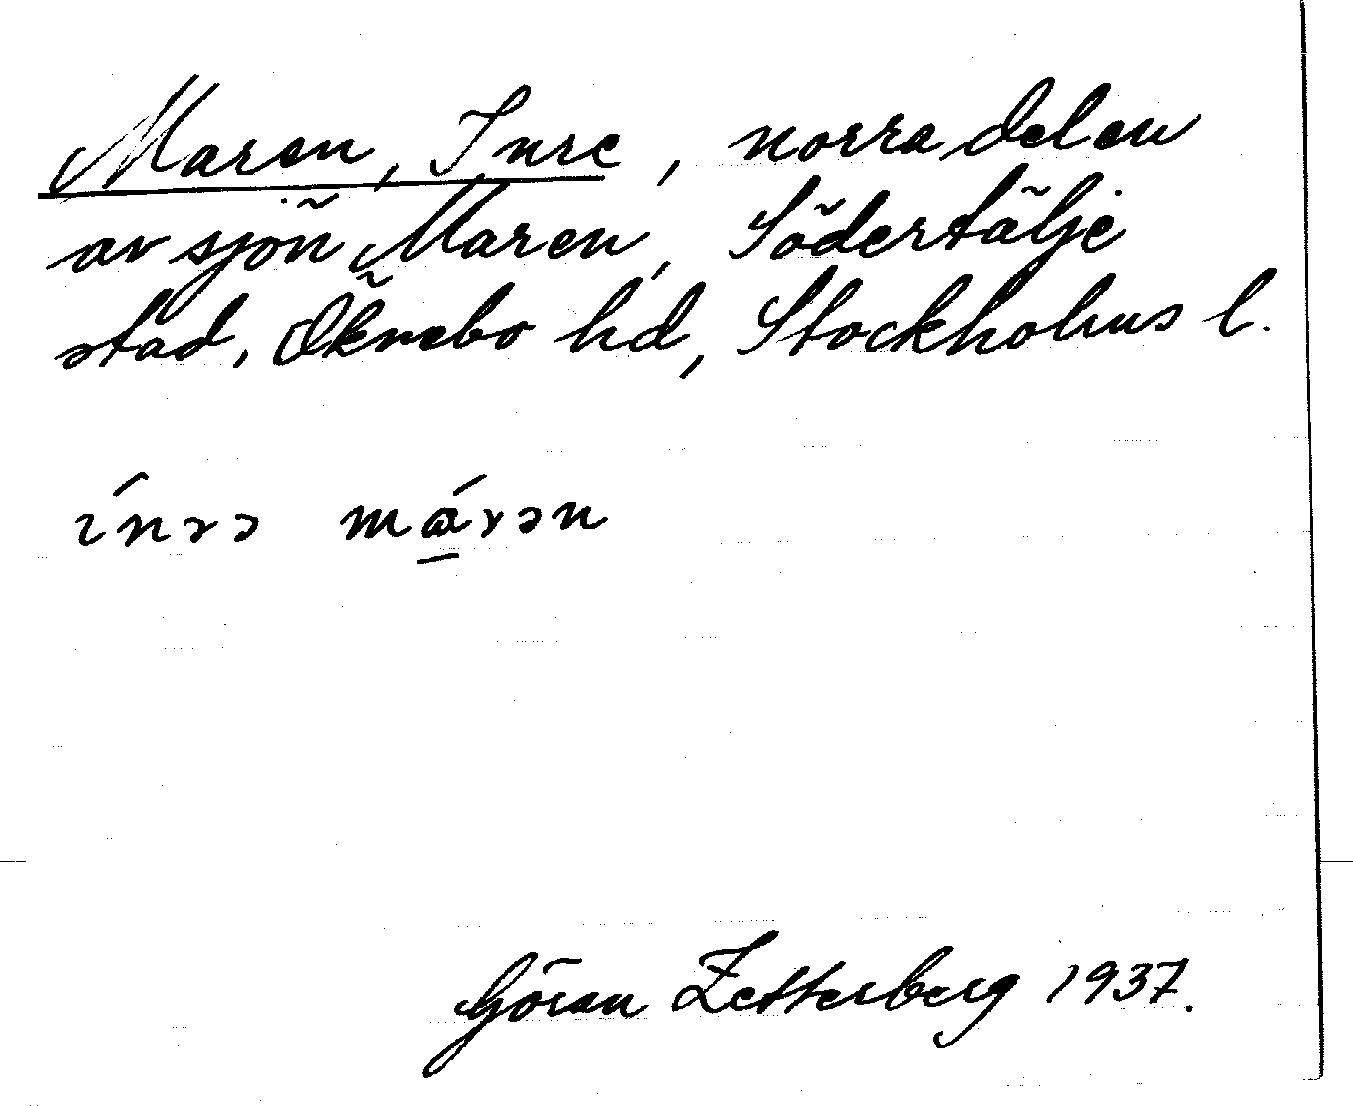 Maren, Inre, norra delen
av sjön Maren, Södertälje
stad, Öknebo hd, Stockholms l.
ínrə má̱rən
Göran Zetterberg 1937.